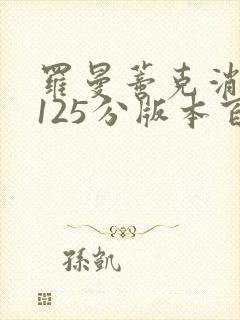 羅曼蒂克消
125分版本百
孫凱